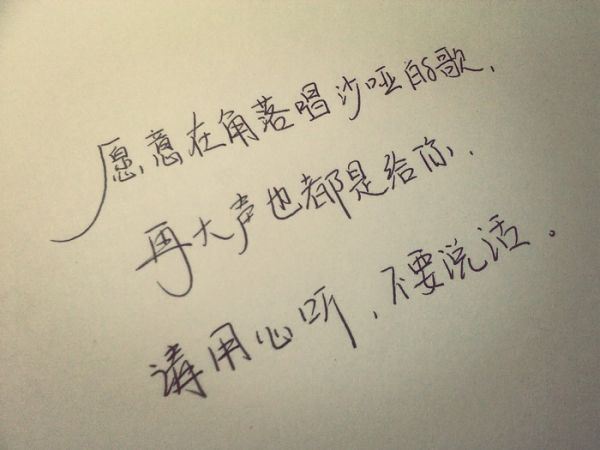 愿意在角落唱沙哑的歌,
再大声也都是给你.
请用心听,不要说话。